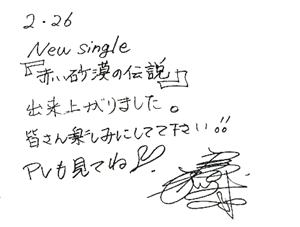 2.26
New single
『赤い砂漠の伝説』
出来上がりました。
皆さん楽しみにしてて下さい!!
PVも見てね♡!